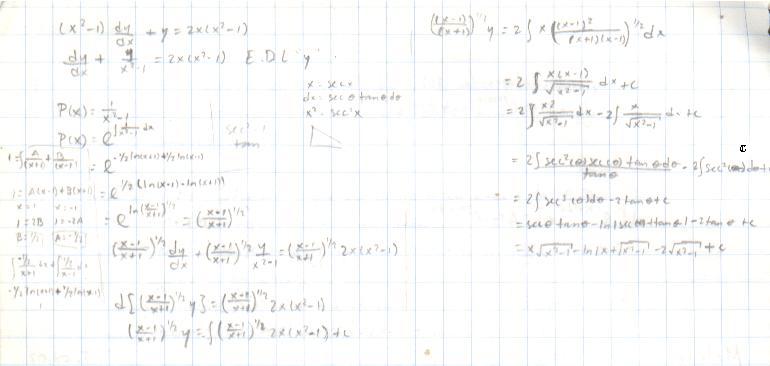 (x²-1) dy/dx + y = 2x(x²-1)
dy/dx + y/x²-1 = 2x(x²-1) E.D.L "y"
x = secx
dx = secθ tanθ dθ
x² = sec²x
P(x) = 1/x²-1
P(x) = e^∫1/x²-1 dx
sec²-1
tan
1 = ∫A/(x+1) + B/(x-1)
= e^-1/2 ln(x+1) + 1/2 ln(x-1)
1 = A(x-1) + B(x+1)
= e^1/2 (ln(x-1) - ln(x+1))
x = 1 x = -1
1 = 2B 1 = -2A
= e^ln(x-1/x+1)^1/2 = (x-1/x+1)^1/2
B = 1/2 A = -1/2
(x-1/x+1)^1/2 dy/dx + (x-1/x+1)^1/2 y/x²-1 = (x-1/x+1)^1/2 2x(x²-1)
∫-1/2/x+1 dx + ∫1/2/x-1 dx
-1/2 ln(x+1) + 1/2 ln(x-1)
d[(x-1/x+1)^1/2 y] = (x-1/x+1)^1/2 2x(x²-1)
(x-1/x+1)^1/2 y = ∫(x-1/x+1)^1/2 2x(x²-1) + c
((x-1)/(x+1))^1/2 y = 2∫ x ((x-1)²/(x+1)(x-1))^1/2 dx
= 2∫ x(x-1)/√x²-1 dx + c
= 2∫ x2/√x²-1 dx - 2∫ x/√x²-1 dx + c
= 2∫ sec²(θ) sec(θ) tanθ dθ/tanθ - 2∫ sec²(θ) dθ +
c
= 2∫ sec³(θ) dθ - 2 tanθ + c
= secθ tanθ - ln|secθ + tanθ| - 2 tanθ + c
= x√x²-1 - ln|x + √x²-1| - 2√x²-1 + c